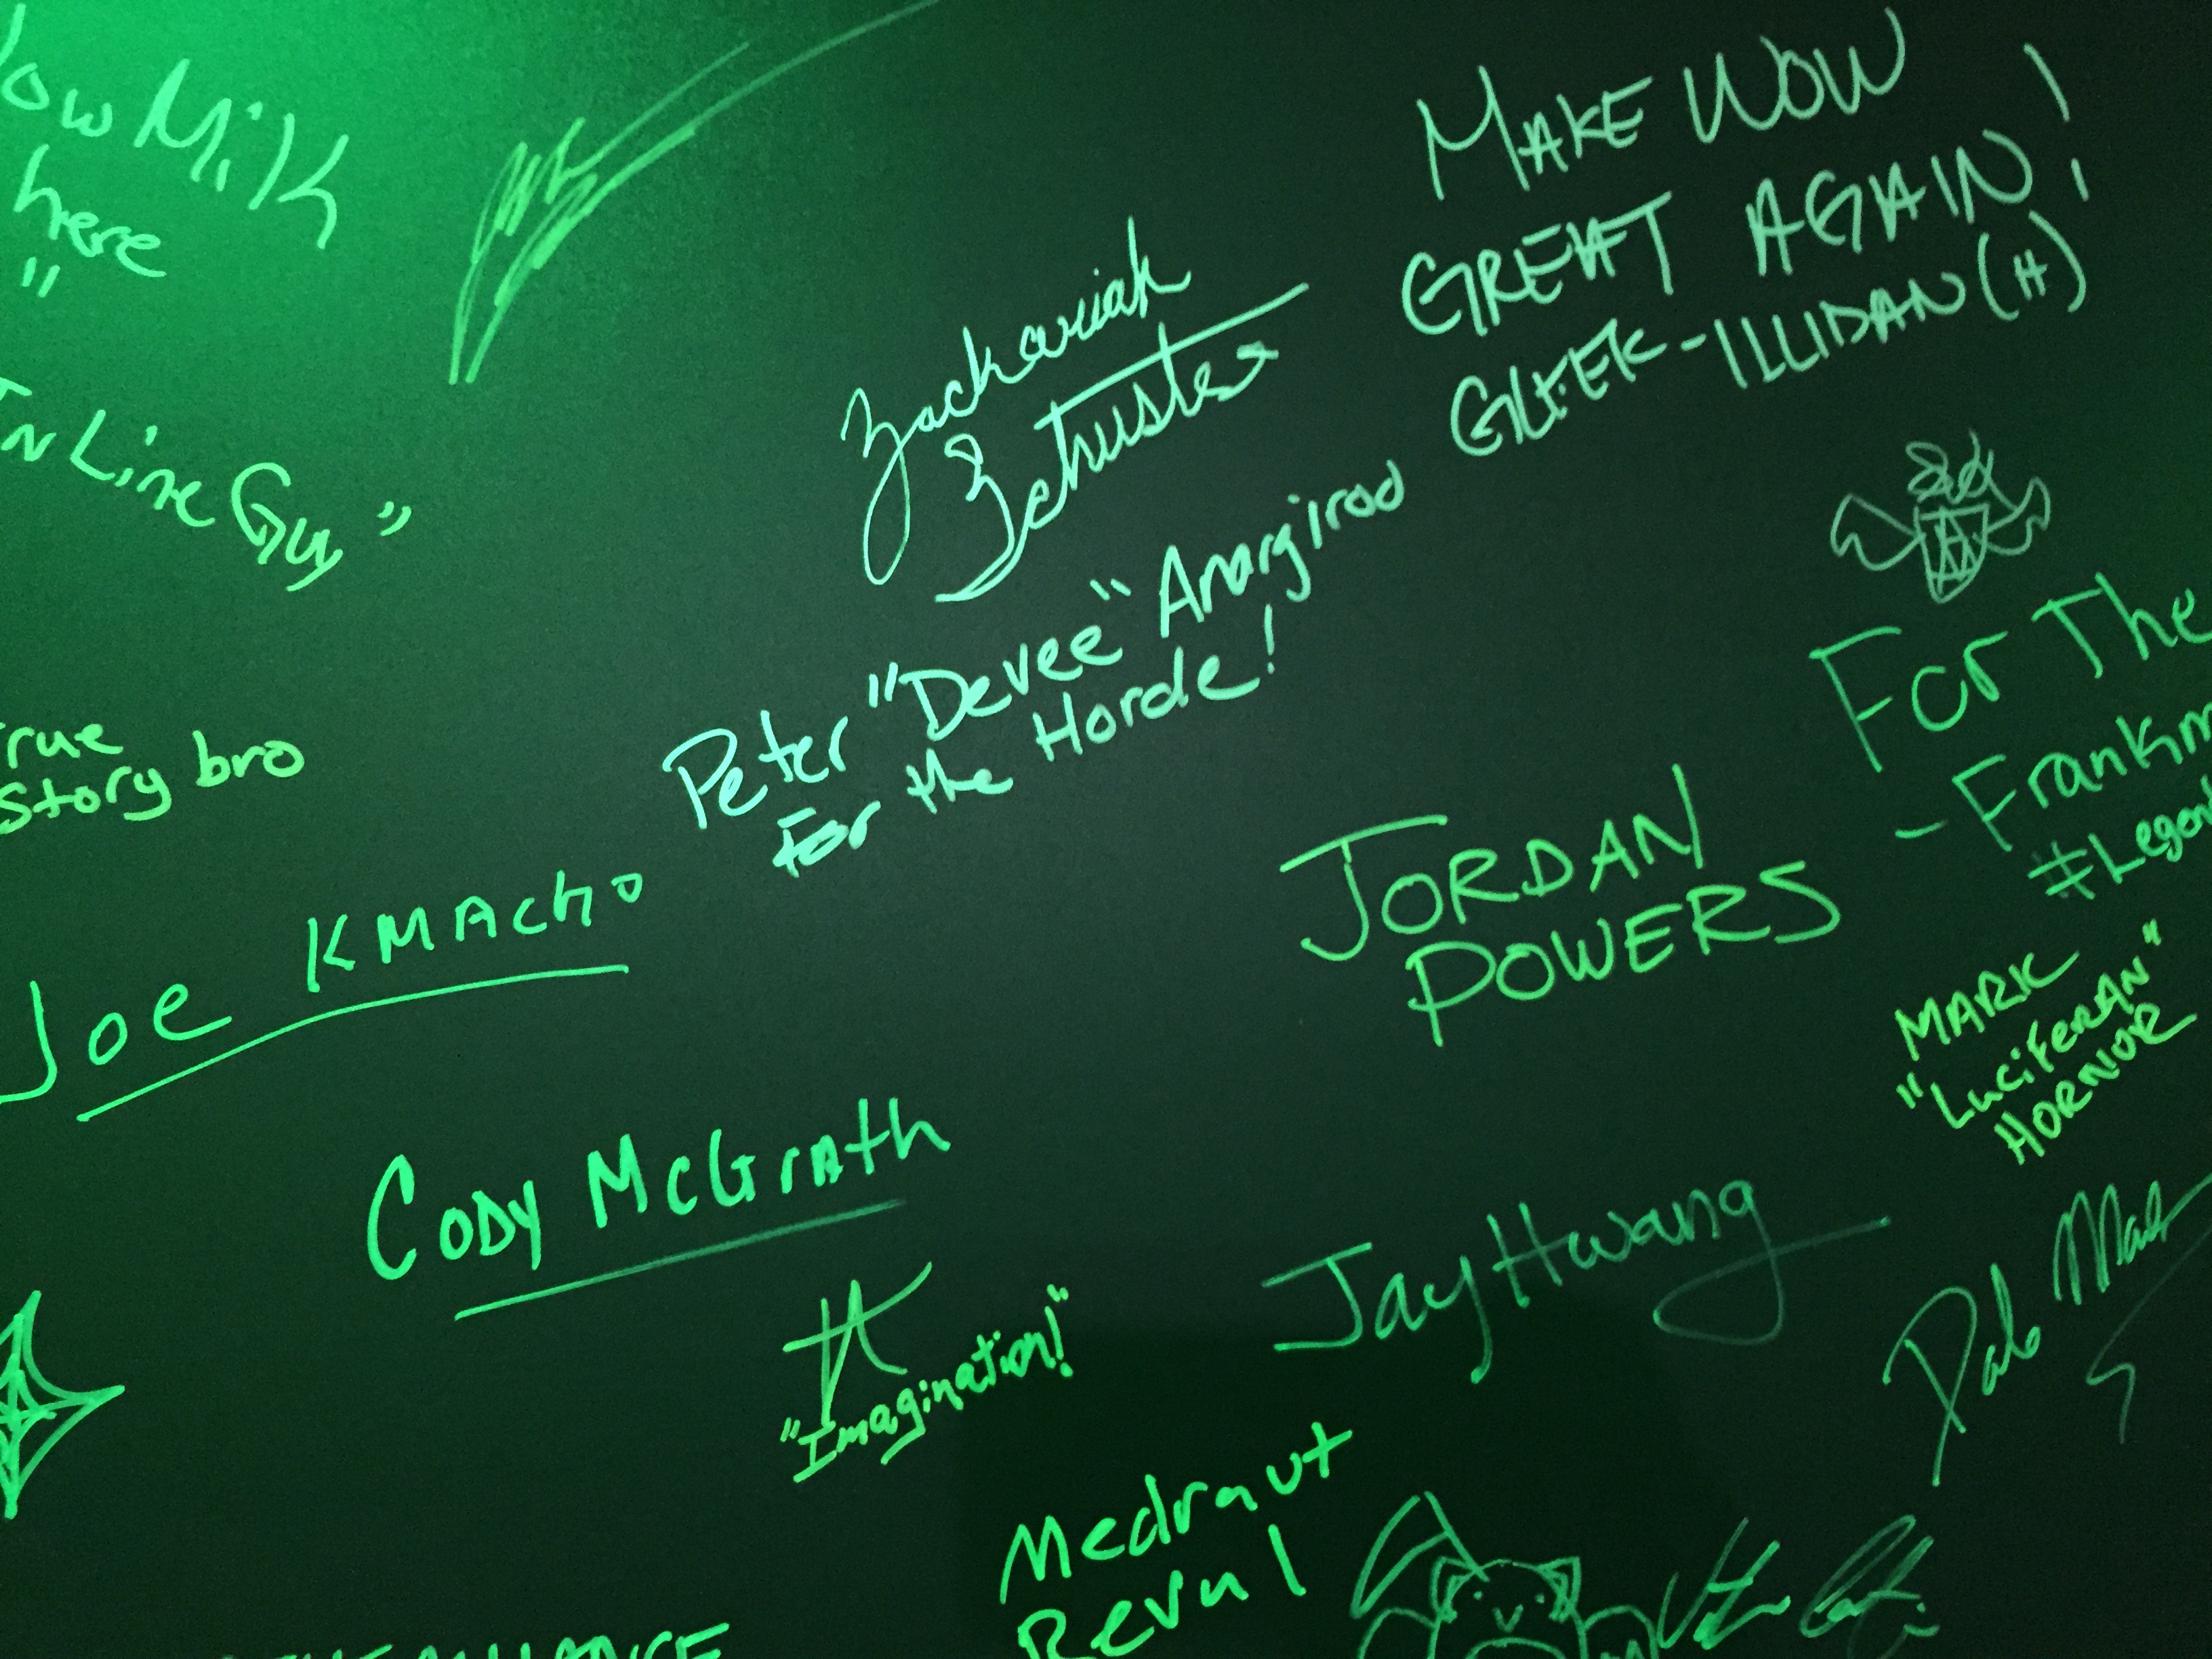 Milk
here
"
In Line Guy"
True
Story bro
Joe KMAcho
Cody McGrath
Zachariah
Schuster
Peter "Devee" Anargirod
For the Horde!
MAKE WOW
GREAT AGAIN!!
GLEEK-ILLIDAN (H)
For The
#Legen
JORDAN
POWERS
MARK
"LuciferAN"
HORNOR
Jay Hwang
"Imagination!"
Medraut
Reval